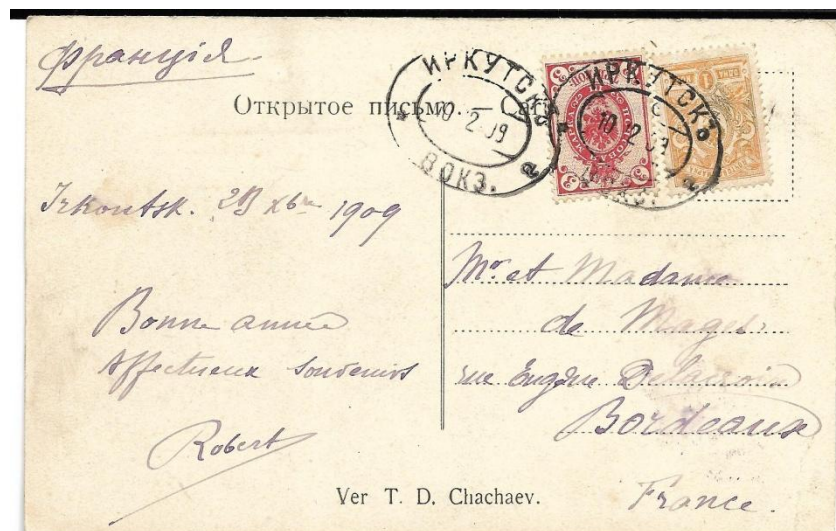 Франція
Открытое письмо.
ИРКУТСКЪ
10 2 09
ВОКЗ.
ИРКУТСКЪ
10 2 09
Irkoutsk. 29 Xbre 1909
Bonne année
Affectueux souvenirs
Robert
Mr et Madame
de
rue Eugène Delacroix
Bordeaux
France.
Ver T. D. Chachaev.